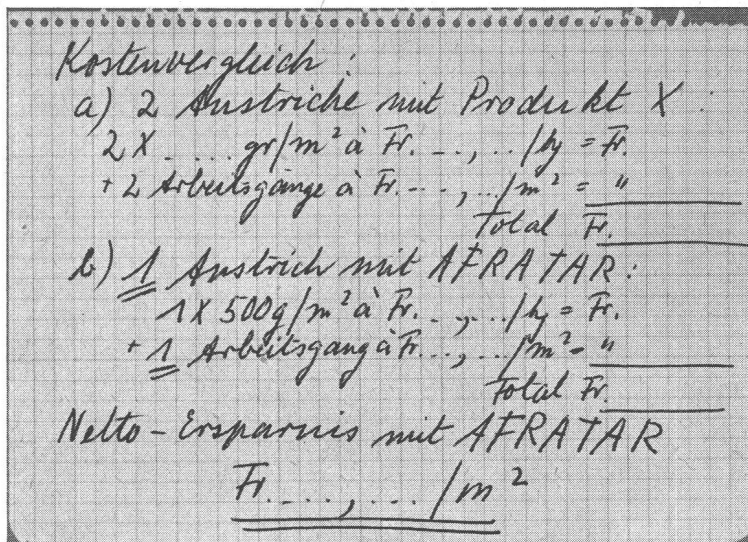 Kostenvergleich:
a) 2 Anstriche mit Produkt X:
2 X .... gr/m² à Fr. ..,../kg = Fr.
+ 2 Arbeitsgänge à Fr. ...,.../m² = "
Total Fr.
b) 1 Anstrich mit AFRATAR:
1 X 500g/m² à Fr. ..,../kg = Fr.
+ 1 Arbeitsgang à Fr. ..,.../m² = "
Total Fr.
Netto-Ersparnis mit AFRATAR
Fr. ...,.../m²